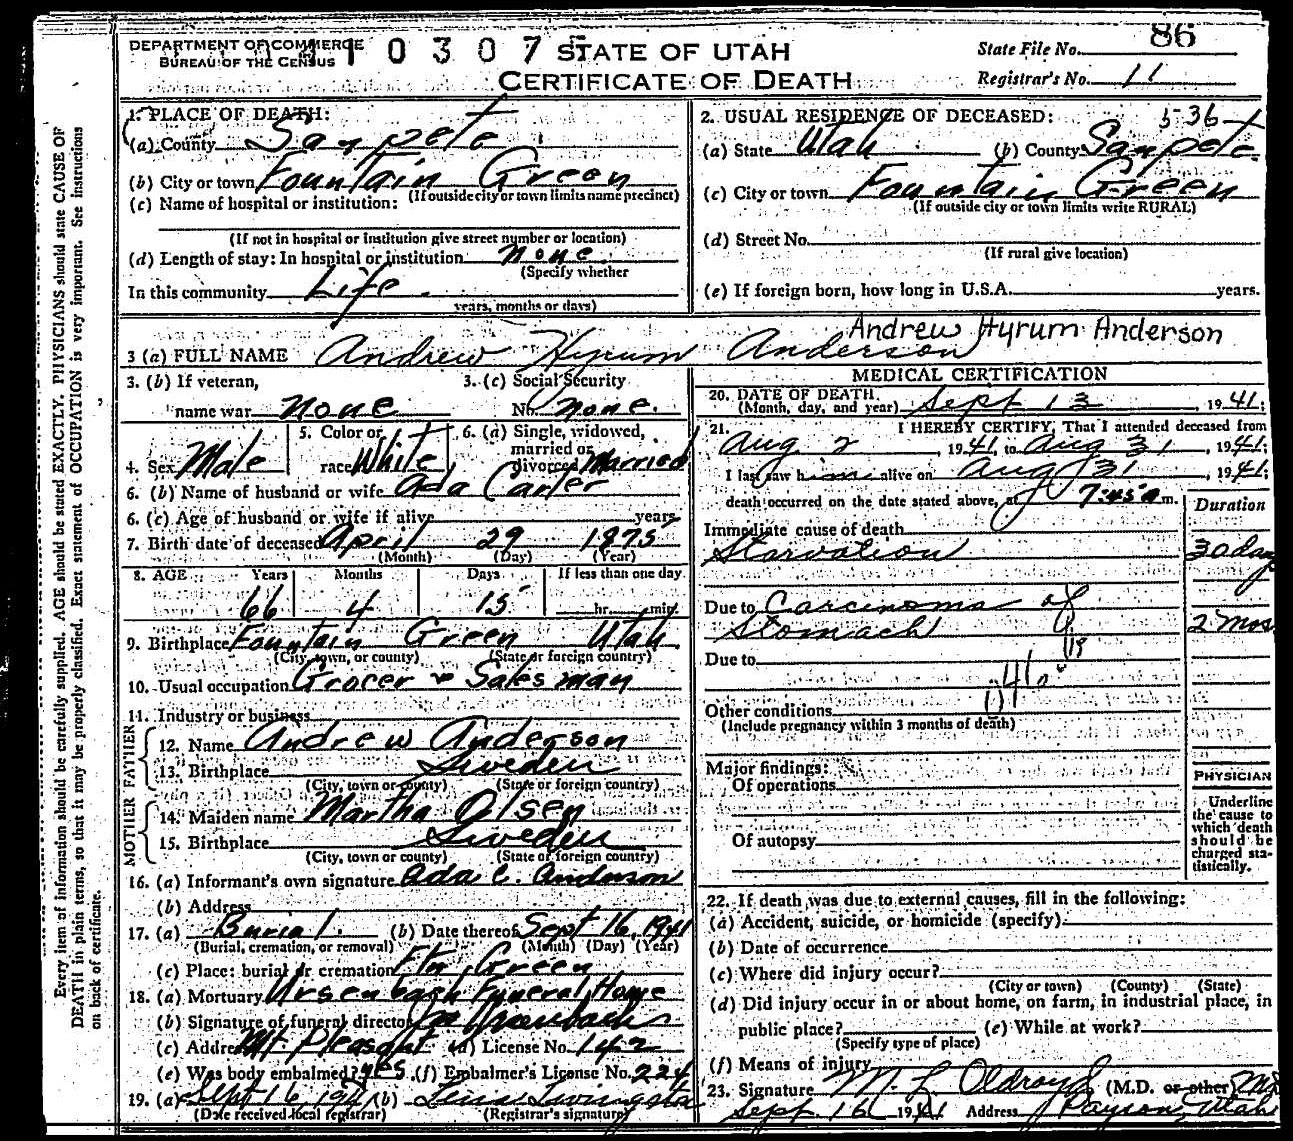 DEPARTMENT OF COMMERCE
BUREAU OF THE CENSUS
10307
STATE OF UTAH
CERTIFICATE OF DEATH
State File No. 86
Registrar's No. 11
1. PLACE OF DEATH:
(a) County Sanpete
(b) City or town Fountain Green
(If outside city or town limits name precinct)
(c) Name of hospital or institution:
(If not in hospital or institution give street number or location)
(d) Length of stay: In hospital or institution none
(Specify whether
In this community Life
years, months or days)
2. USUAL RESIDENCE OF DECEASED: 536
(a) State Utah (b) County Sanpete
(c) City or town Fountain Green
(If outside city or town limits write RURAL)
(d) Street No.
(If rural give location)
(e) If foreign born, how long in U.S.A. years.
Andrew Hyrum Anderson
3 (a) FULL NAME Andrew Hyrum Anderson
3. (b) If veteran, name war none
3. (c) Social Security No. none.
4. Sex Male
5. Color or race White
6. (a) Single, widowed, married or divorced Married
6. (b) Name of husband or wife Ada Carter
6. (c) Age of husband or wife if alive years
7. Birth date of deceased April 29 1875
(Month) (Day) (Year)
8. AGE Years Months Days If less than one day
66 4 15 hr. min.
9. Birthplace Fountain Green Utah
(City, town, or county) (State or foreign country)
10. Usual occupation Grocer & Salesman
11. Industry or business
FATHER
12. Name Andrew Anderson
13. Birthplace Sweden
(City, town or county) (State or foreign country)
MOTHER
14. Maiden name Martha Olsen
15. Birthplace Sweden
(City, town or county) (State or foreign country)
16. (a) Informant's own signature Ada C. Anderson
(b) Address
17. (a) Burial. (b) Date thereof Sept 16, 1941
(Burial, cremation, or removal) (Month) (Day) (Year)
(c) Place: burial or cremation Ftn Green
18. (a) Mortuary Ursenbach Funeral Home
(b) Signature of funeral director Ursenbach
(c) Address Mt. Pleasant (d) License No. 142
(e) Was body embalmed? yes (f) Embalmer's License No. 224
19. (a) Sept 16, 1941 (b) Livingston
(Date received local registrar) (Registrar's signature)
MEDICAL CERTIFICATION
20. DATE OF DEATH
(Month, day, and year) Sept 13, 1941;
21. I HEREBY CERTIFY, That I attended deceased from
Aug 2, 1941, to Aug 31, 1941;
I last saw him alive on Aug 31, 1941;
death occurred on the date stated above, at 7:45 a m.
Duration
Immediate cause of death
Starvation 30 days
Due to Carcinoma of
Stomach 2 mos
Due to
Other conditions
(Include pregnancy within 3 months of death)
Major findings:
Of operations
Of autopsy
PHYSICIAN
Underline the cause to which death should be charged statistically.
22. If death was due to external causes, fill in the following:
(a) Accident, suicide, or homicide (specify)
(b) Date of occurrence
(c) Where did injury occur?
(City or town) (County) (State)
(d) Did injury occur in or about home, on farm, in industrial place, in
public place? (e) While at work?
(Specify type of place)
(f) Means of injury
23. Signature M. L. Oldroyd (M.D. or other) MD
Sept. 16, 1941 Address Payson, Utah
Every item of information should be carefully supplied. AGE should be stated EXACTLY. PHYSICIANS should state CAUSE OF
DEATH in plain terms, so that it may be properly classified. Exact statement of OCCUPATION is very important. See instructions
on back of certificate.